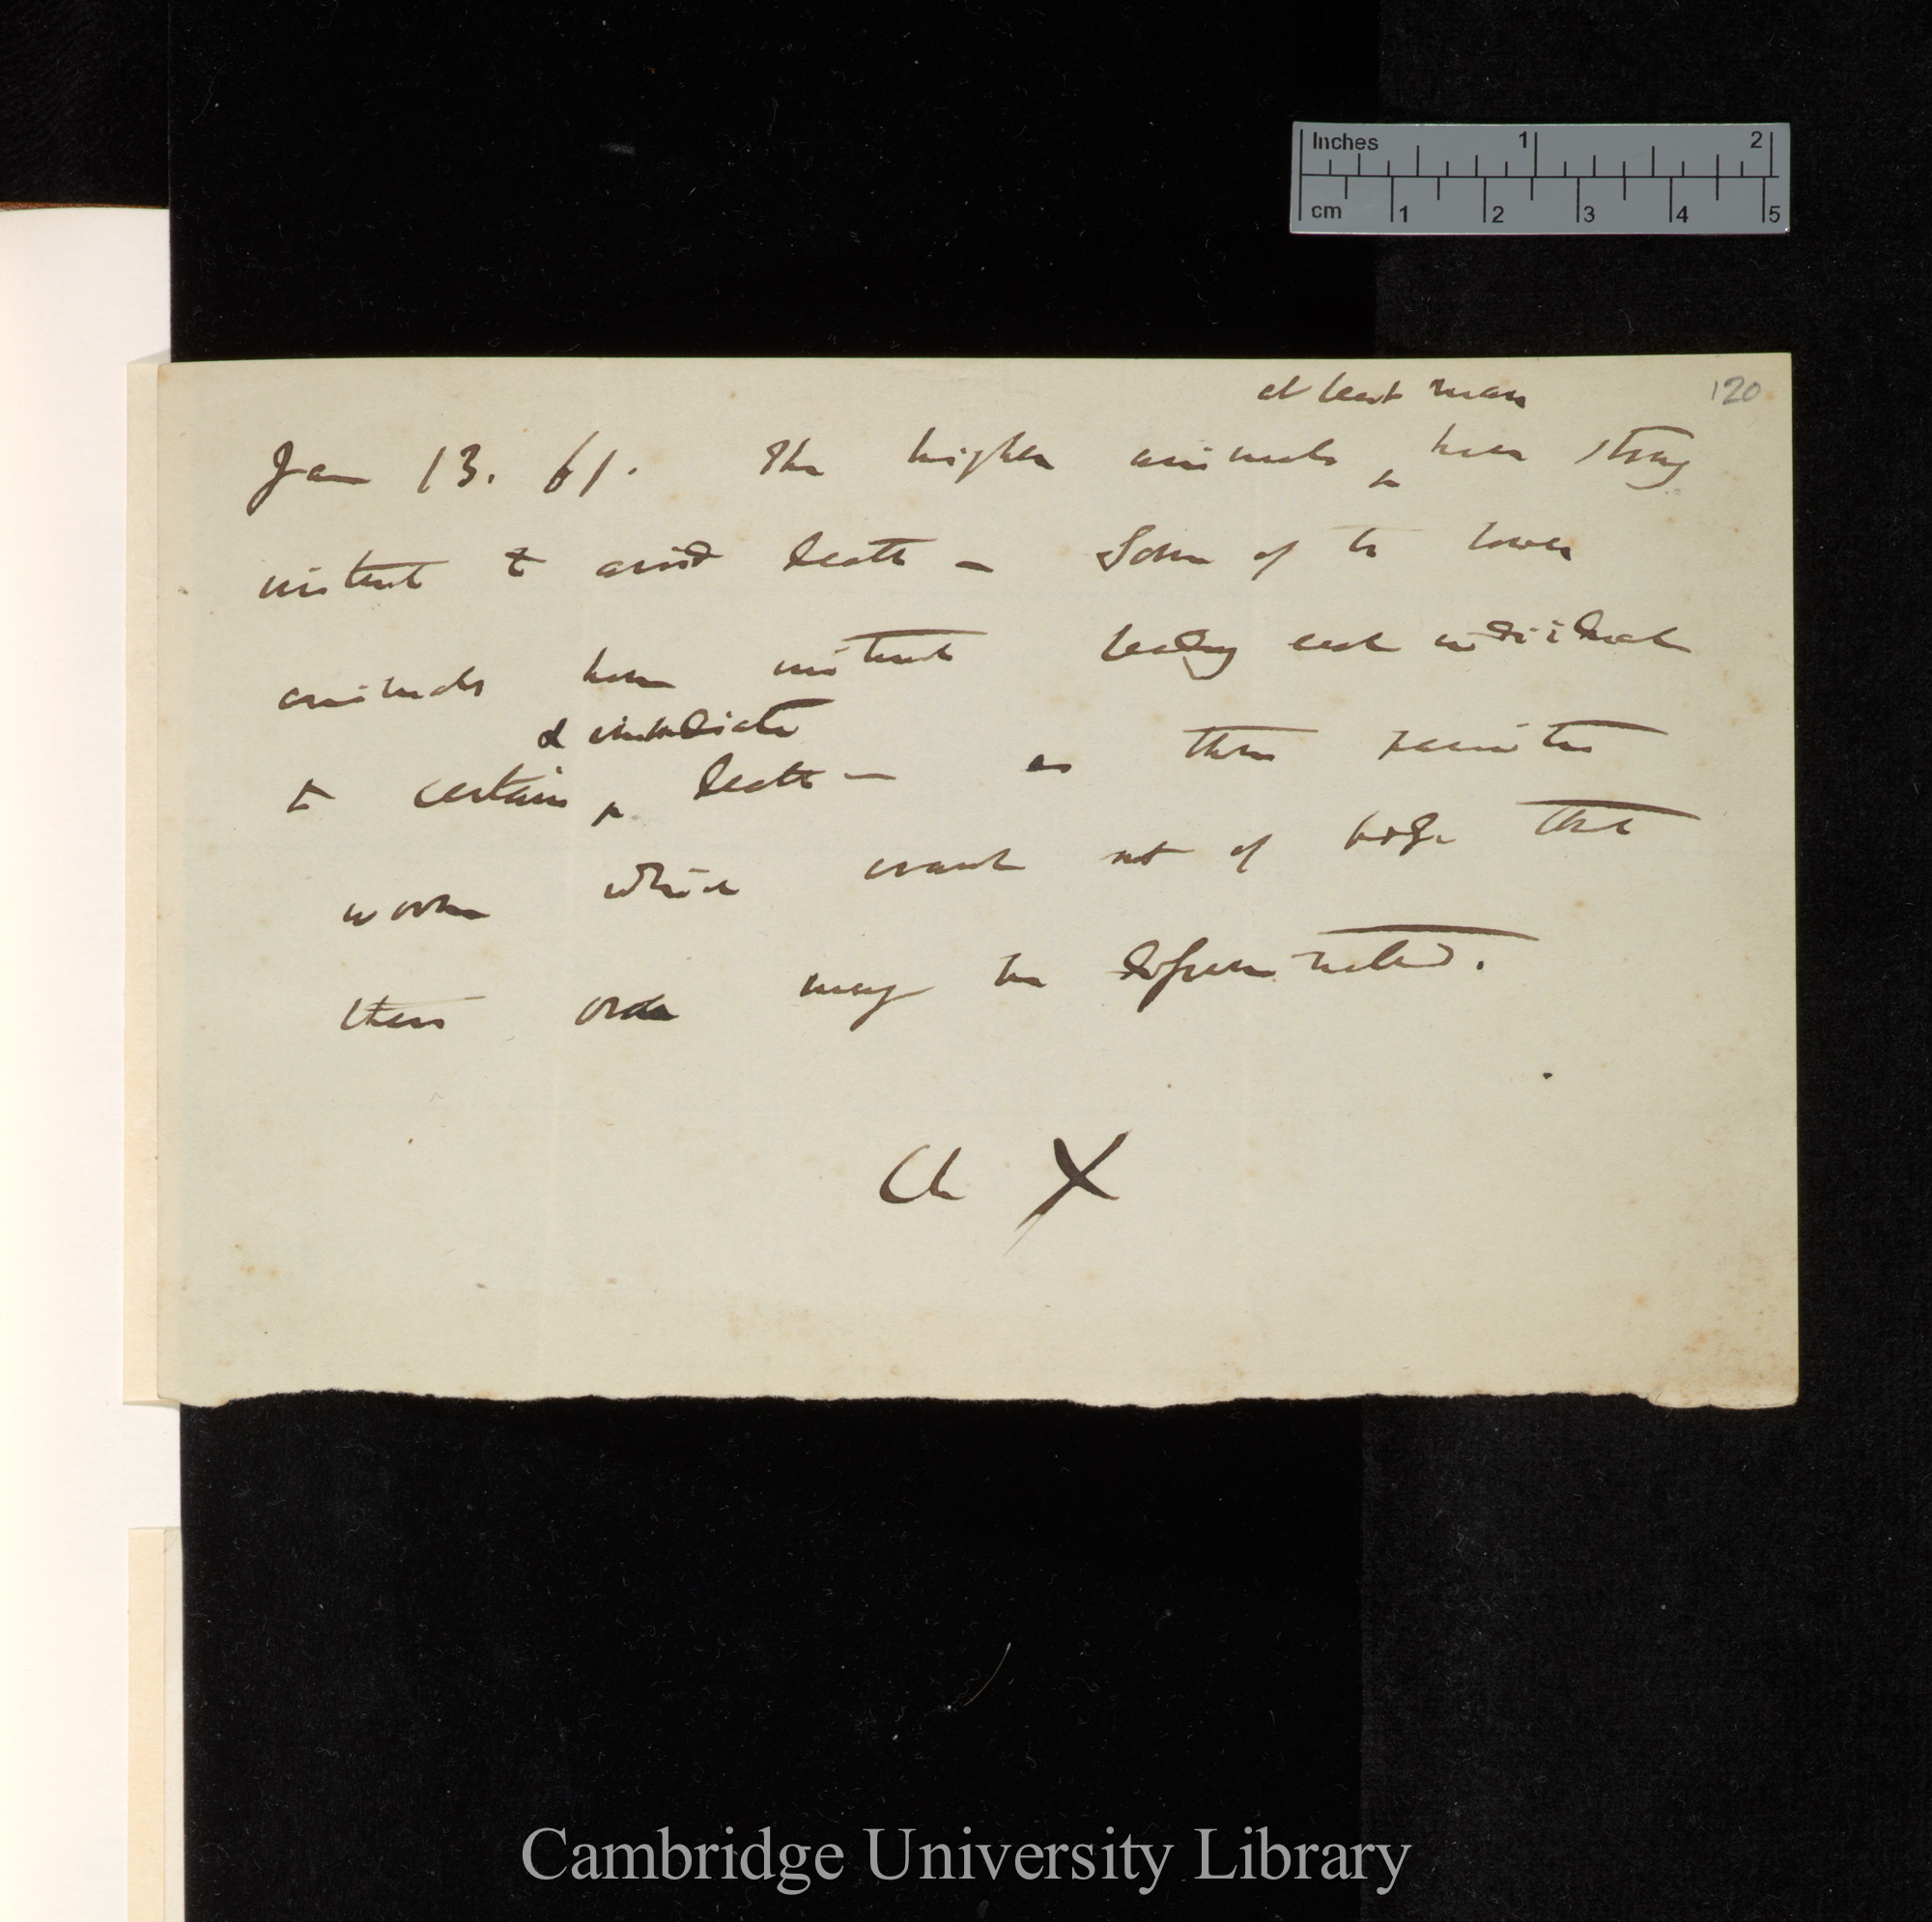 Inches 1 2
cm 1 2 3 4 5
120
at least man
Jan 13. 61. The higher animals ^ have strong
instinct to avoid death — Some of the lower
animals have instinct leading each individual
& immediate
to certain ^ death — as those parasitic
worms which crawl out of body that
their ova may be disseminated.
Ch X
Cambridge University Library